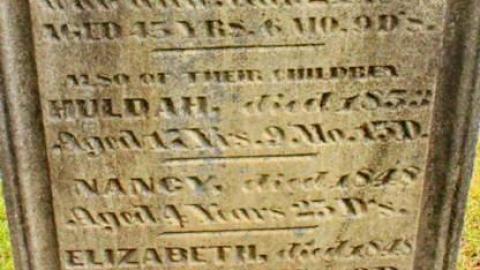 AGED 45 YRS. 6 MO. 9 D's.
ALSO OF THEIR CHILDREN
HULDAH, died 1853
Aged 15 Yrs. 9 Mo. 15 D.
NANCY, died 1848
Aged 4 Years 25 D's.
ELIZABETH, died 1848